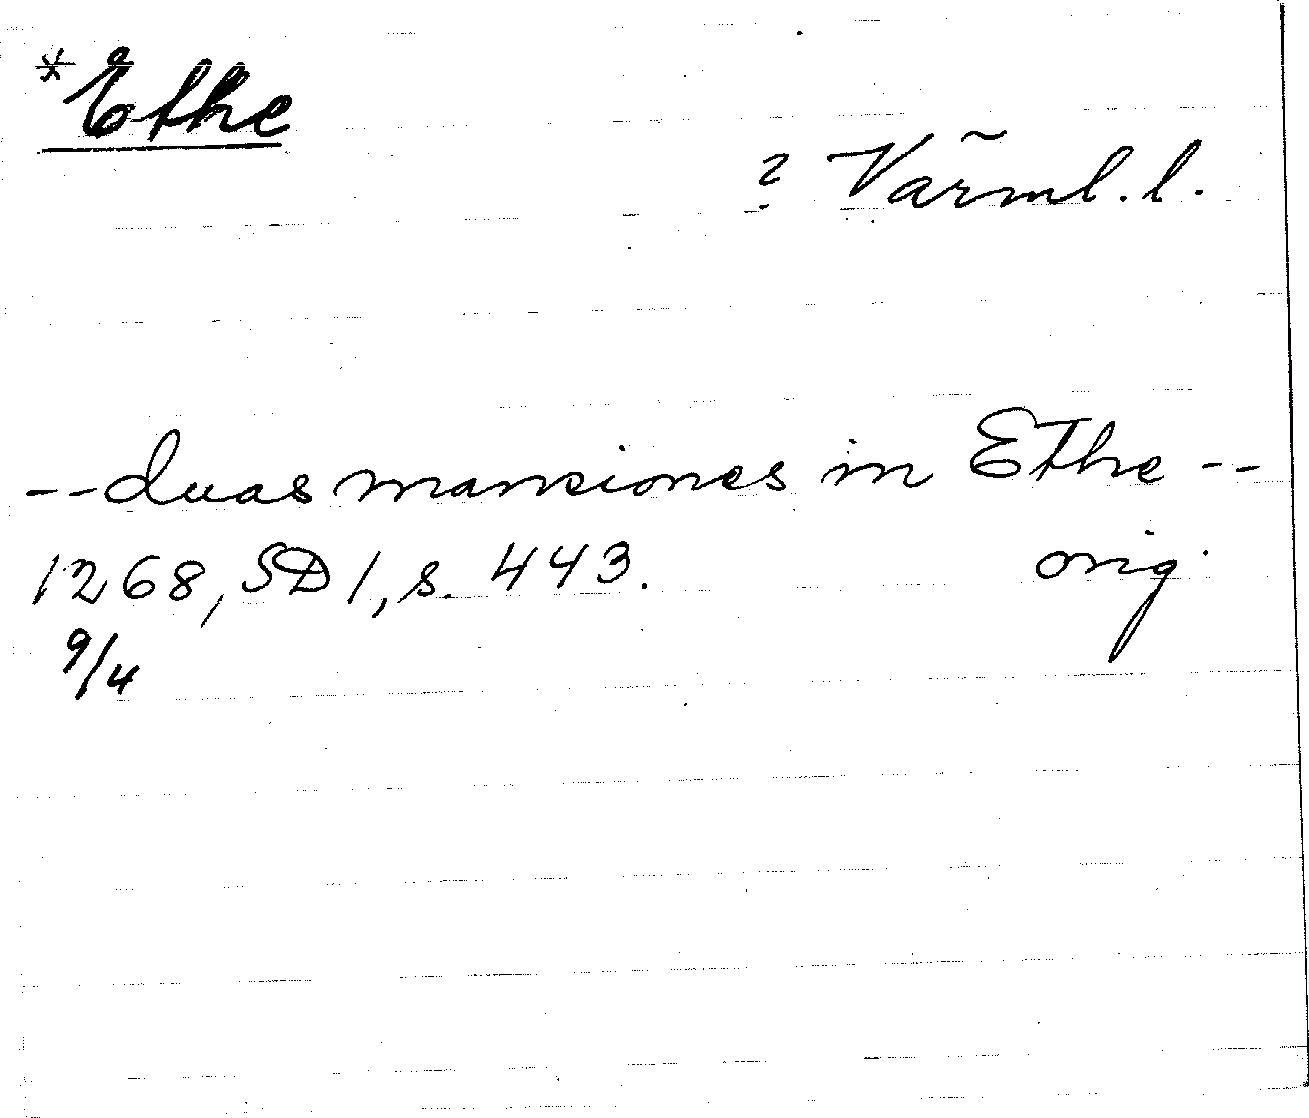 *Ethe
? Värml. l.
--duas mansiones in Ethe--
1268, SD 1, s. 443. orig.
9/4